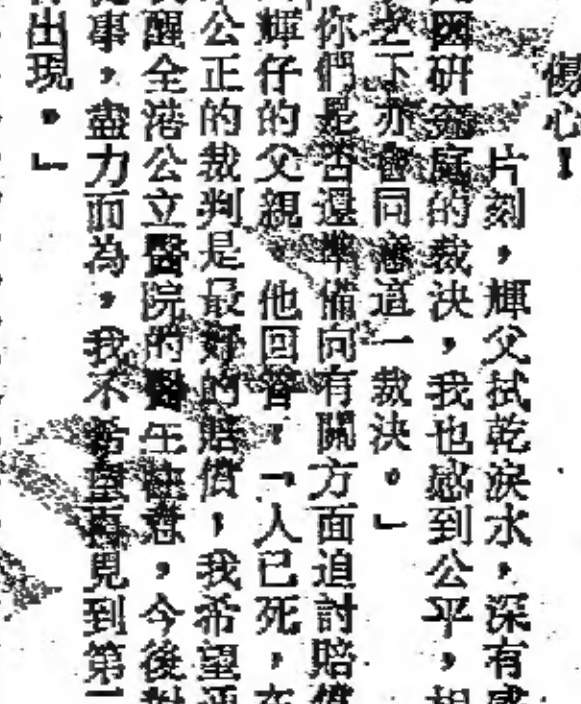 傷心!
片刻,輝父拭乾淚水,深有感
研究庭的裁決,我也感到公平,相
之下亦會同意這一裁決。」
你們是否還準備向有關方面追討賠償
輝仔的父親,他回答,「人已死,在
公正的裁判是最好的賠償,我希望
醒全港公立醫院的醫生注意,今後對
事,盡力而為,我不希望再見到第
出現。」